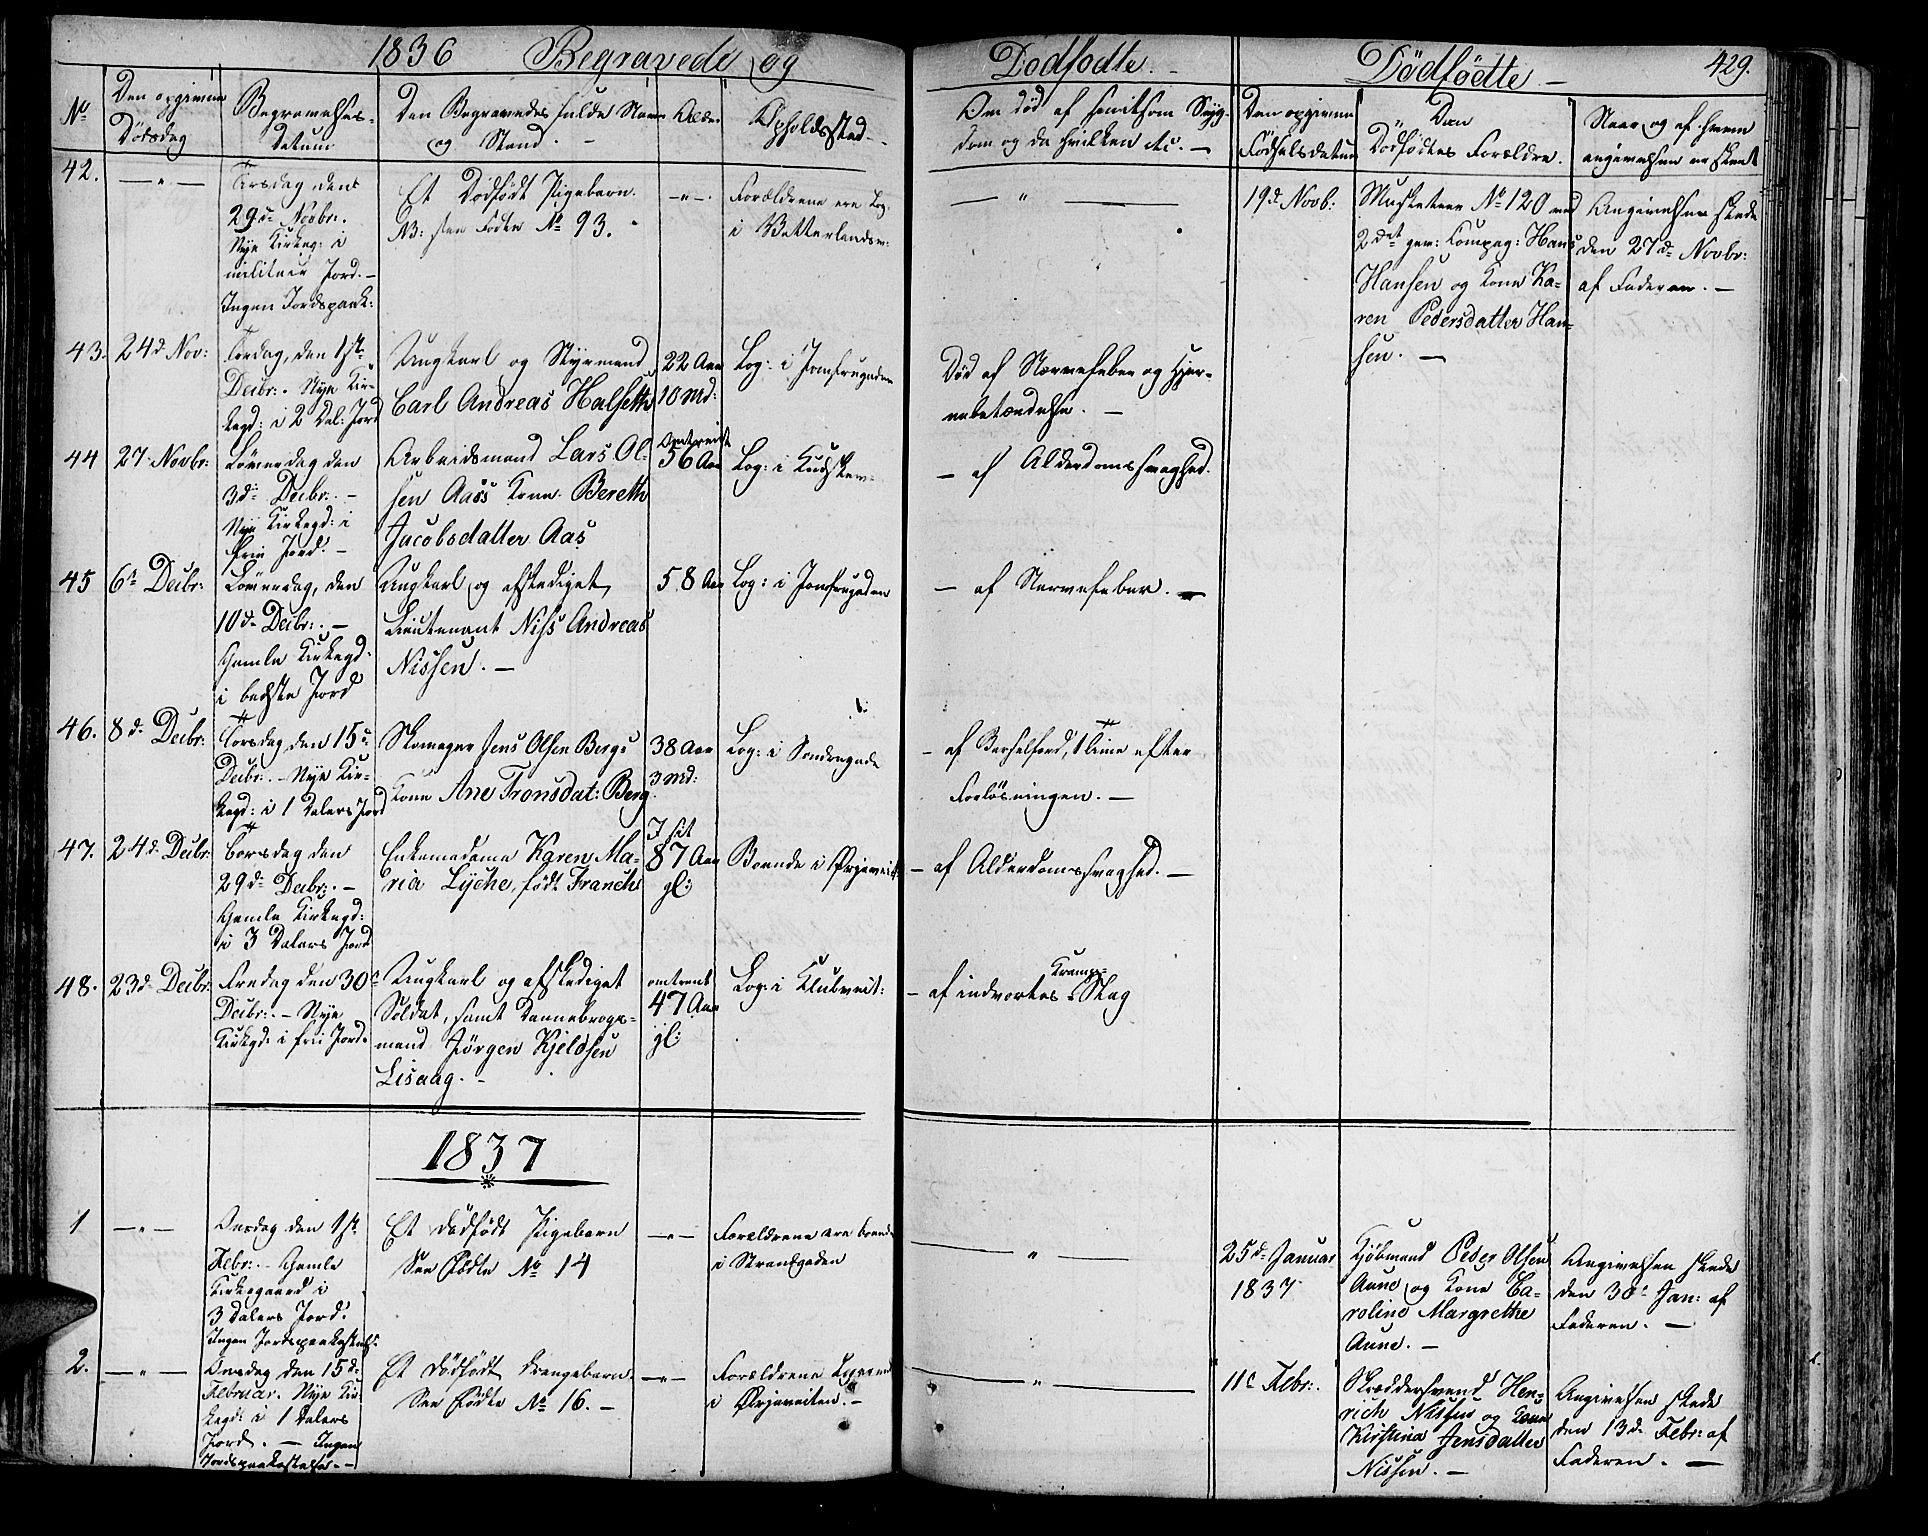 1836 Begravede og
Dodfodte. -
Dödföedte -
429.
No
Den opgivne
Dødsdag
Begravelses-
Datum
Den Begravedes fulde Navn
og Stand. -
Alder
Opholdssted -
Om død af hvilken Syg-
dom og da hvilken etc. -
Den opgivne
Fødselsdatum
Den
Dödfödtes Forældre.
Naar og af hvem
angivelsen er skeet
42.
— " —
Tirsdag den
29de Novbr:
Nye Kirkeg: i
militair Jord. -
Ingen Jordspaak:
Et Dödfödt Pigebarn.
NB: see Födte No 93.
— " —
Forældrene ere Log.
i Vatterlandsv:
— " —
19de Novb:
Musketeer No 120 ved
2det gev: Compag: Hans
Hansen og Kone Ka-
ren Pedersdatter Han-
sen. —
Angivelsen skede
den 27de Novbr:
af Faderen. -
43.
24d Nov:
Torsdag, den 1ste
Decbr:. Nye Kir-
kegd: i 2 Dal: Jord
Ungkarl og Styrmand
Carl Andreas Halseth
22 Aar
10 Md:
Log: i Jomfrugaden
Död af Nervefeber og Hjer-
nebetændelse. —
44
27 Novbr:
Löverdag den
3de Decbr:. -
Nye Kirkegd: i
frie Jord. -
Arbeidsmand Lars Ol-
sen Aass Kone Bereth
Jacobsdatter Aas
omtrent
56 Aar
Log: i
— af Alderdomssvaghed.
45
6te Decbr:
Löverdag, den
10de Decbr:. -
Gamle Kirkegd:
i bedste Jord
Ungkarl og afskediget
Lieutenant Niss Andreas
Nissen. —
58 Aar
Log: i Jomfrugaden
— af Nervefeber. —
46.
8d. Decbr:
Torsdag den 15de
Decbr:. - Nye Kir-
kegd: i 1 Dalers Jord
Skomager Jens Olsen Bergs
Kone Ane Tronsdat: Berg
38 Aar
3 Md:
Log: i Sondregade
— af Barselfærd, 1 Time efter
Forlösningen. —
47.
24d. Decbr:
Torsdag den
29de Decbr:. -
Gamle Kirkegd:
i 3 Dalers Jord
Enkemadame Karen Ma-
ria Lyche, födt Franck
I sit
87 Aar
gl:
Boende i Ørjeveit:
— af Alderdomssvaghed. —
48.
23d. Decbr:
Fredag den 30te
Decbr:. - Nye
Kirkegd: i frii Jord.
Ungkarl og afskediget
Soldat, samt Dannebrogs-
mand Jörgen Kjeldsen
Lisaag. -
omtrent
47 Aar
gl:
Log: i Klubveit:
— af indvortes Krampe-Slag
1837
1
— " —
Onsdag den 1ste
Febr:. Gamle
Kirkegaard i
3 Dalers Jord.
Ingen Jordspaakastelse.
Et dödfödt Pigebarn
See Födte No 14
— " —
Forældrene ere boende
i Strandgaden
— " —
25de Januar
1837
Kjöbmand Peder Olsen
Aune og Kone Ca-
roline Margrethe
Aune. -
Angivelsen skede
den 30te Jan: af
Faderen. —
2.
— " —
Onsdag den 15de
Februar. Nye Kir-
kegd: i 1 Dalers
Jord. — Ingen
Jordspaakastelse. -
Et dödfödt Drengebarn.
See Födte No 16. -
— " —
Forældrene Logerende
i Ørjeveiten. -
— " —
11te Febr:.
Skræddersvend Hen-
rich Nissen og Kone
Kirstina Jensdatter
Nissen. —
Angivelsen skede
den 13de Febr: af
Faderen. —